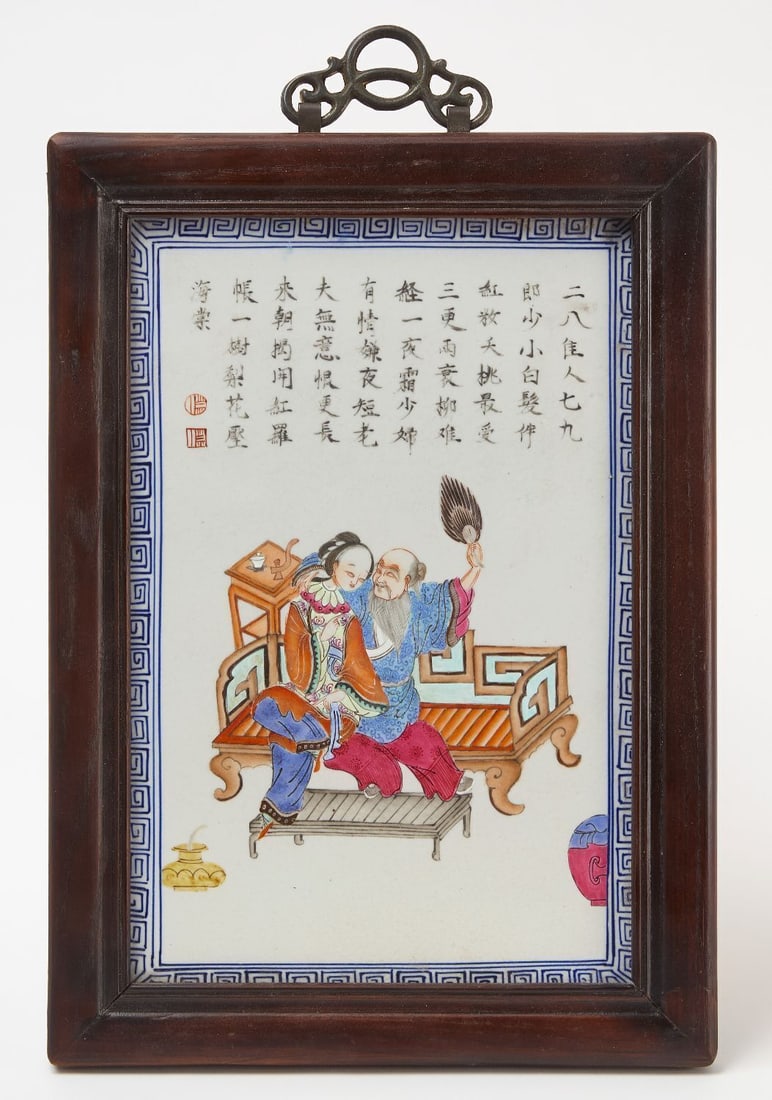 二八佳人七九
郎少小白髮伴
紅妝夭桃最愛
三更雨衰柳难
經一夜霜少婦
有情嫌夜短老
夫無意恨更長
來朝揭開紅羅
帳一樹梨花壓
海棠